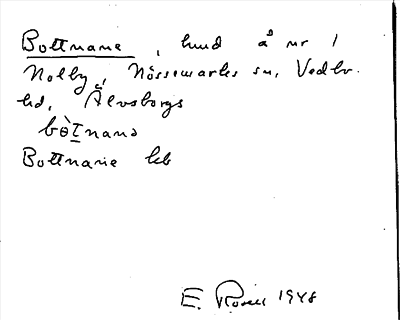 Bottnane, hund å nr 1
Nolby, Nössemarks sn, Vedbo
hd, Älvsborgs
bòtnanə
Bottnane lib
E. Rosell 1948